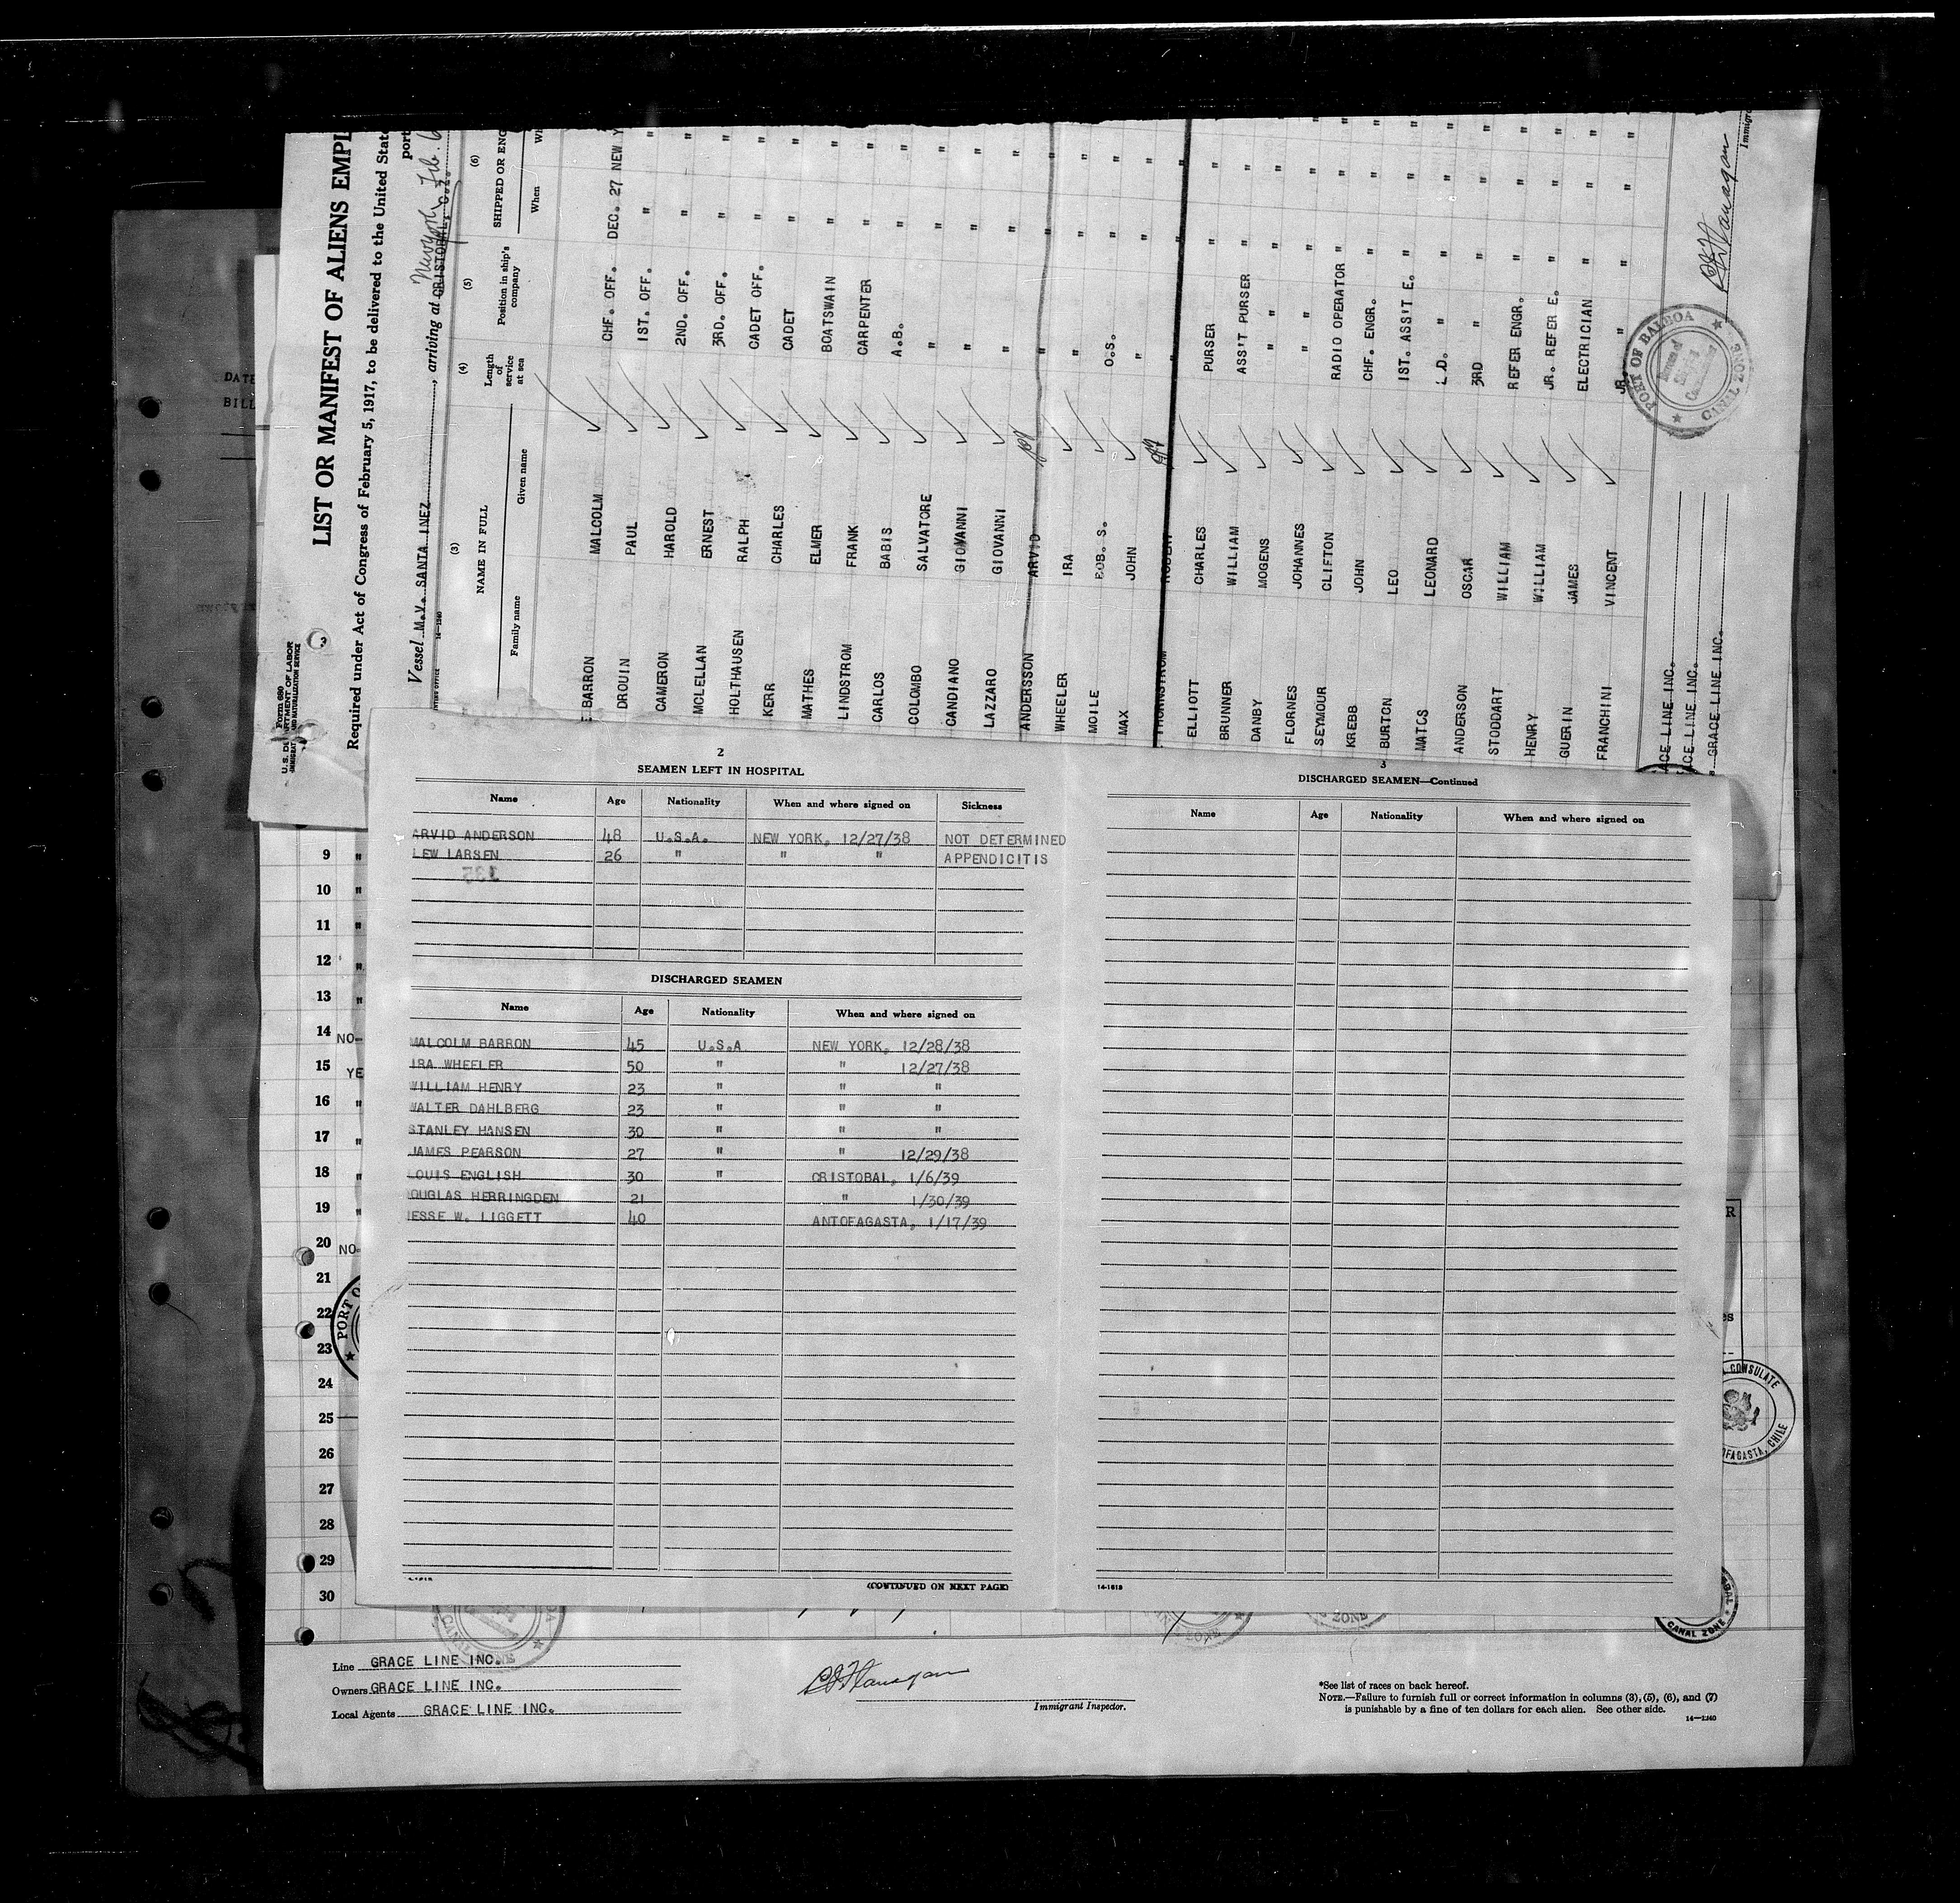 LIST OR MANIFEST OF ALIENS EMPL
Required under Act of Congress of February 5, 1917, to be delivered to the United State
Form 680
U.S. DEPARTMENT OF LABOR
IMMIGRATION AND NATURALIZATION SERVICE
Vessel M.V. SANTA INEZ, arriving at CRISTOBAL, C.Z. port
New York Feb. 6
14—1240
(3) (4) (5) (6)
NAME IN FULL Length of service at sea Position in ship's company SHIPPED OR ENG
Family name Given name When Wh
E BARRON MALCOLM CHF. OFF. DEC. 27 NEW Y
DROUIN PAUL 1ST. OFF. " "
CAMERON HAROLD 2ND. OFF. " "
MCLELLAN ERNEST 3RD. OFF. " "
HOLTHAUSEN RALPH CADET OFF. " "
KERR CHARLES CADET " "
MATHES ELMER BOATSWAIN " "
LINDSTROM FRANK CARPENTER " "
CARLOS BABIS A.B. " "
COLOMBO SALVATORE " " "
CANDIANO GIOVANNI " " "
LAZZARO GIOVANNI " " "
ANDERSSON ARVID " " "
WHEELER IRA " " "
MOILE BOB. S. O.S. " "
MAX JOHN " " "
THORNSTROM ROBERT " "
ELLIOTT CHARLES PURSER " "
BRUNNER WILLIAM ASS'T PURSER " "
DANBY MOGENS " " " "
FLORNES JOHANNES " " " "
SEYMOUR CLIFTON RADIO OPERATOR " "
KREBB JOHN CHF. ENGR. " "
BURTON LEO 1ST. ASS'T E. " "
MATOS LEONARD L.D. " " "
ANDERSON OSCAR 3RD " " "
STODDART WILLIAM REFER ENGR. " "
HENRY WILLIAM JR. REFER E. " "
GUERIN JAMES ELECTRICIAN " "
FRANCHINI VINCENT JR. " " "
ACE LINE INC.
ACE LINE INC.
GRACE LINE INC.
PORT OF BALBOA
CANAL ZONE
Immigr
DATE
BILL
2
SEAMEN LEFT IN HOSPITAL
Name Age Nationality When and where signed on Sickness
ARVID ANDERSON 48 U.S.A. NEW YORK, 12/27/38 NOT DETERMINED
LEW LARSEN 26 " " " APPENDICITIS
DISCHARGED SEAMEN
Name Age Nationality When and where signed on
MALCOLM BARRON 45 U.S.A NEW YORK, 12/28/38
IRA WHEELER 50 " " 12/27/38
WILLIAM HENRY 23 " " "
WALTER DAHLBERG 23 " " "
STANLEY HANSEN 30 " " "
JAMES PEARSON 27 " " 12/29/38
LOUIS ENGLISH 30 " CRISTOBAL, 1/6/39
OUGLAS HERRINGDEN 21 " 1/30/39
JESSE W. LIGGETT 40 ANTOFAGASTA, 1/17/39
(CONTINUED ON NEXT PAGE)
3
DISCHARGED SEAMEN—Continued
Name Age Nationality When and where signed on
14-1618
9 "
10 "
11 "
12 "
13 "
14 NO
15 YE
16 "
17 "
18 "
19 "
20 NO
21
22
23
24
25
26
27
28
29
30
PORT O
R
es
CONSULATE
OFAGASTA, CHILE
ZONE
CANAL ZONE
Line GRACE LINE INC.
Owners GRACE LINE INC.
Local Agents GRACE LINE INC.
Immigrant Inspector.
*See list of races on back hereof.
NOTE.—Failure to furnish full or correct information in columns (3), (5), (6), and (7)
is punishable by a fine of ten dollars for each alien. See other side.
14—1240